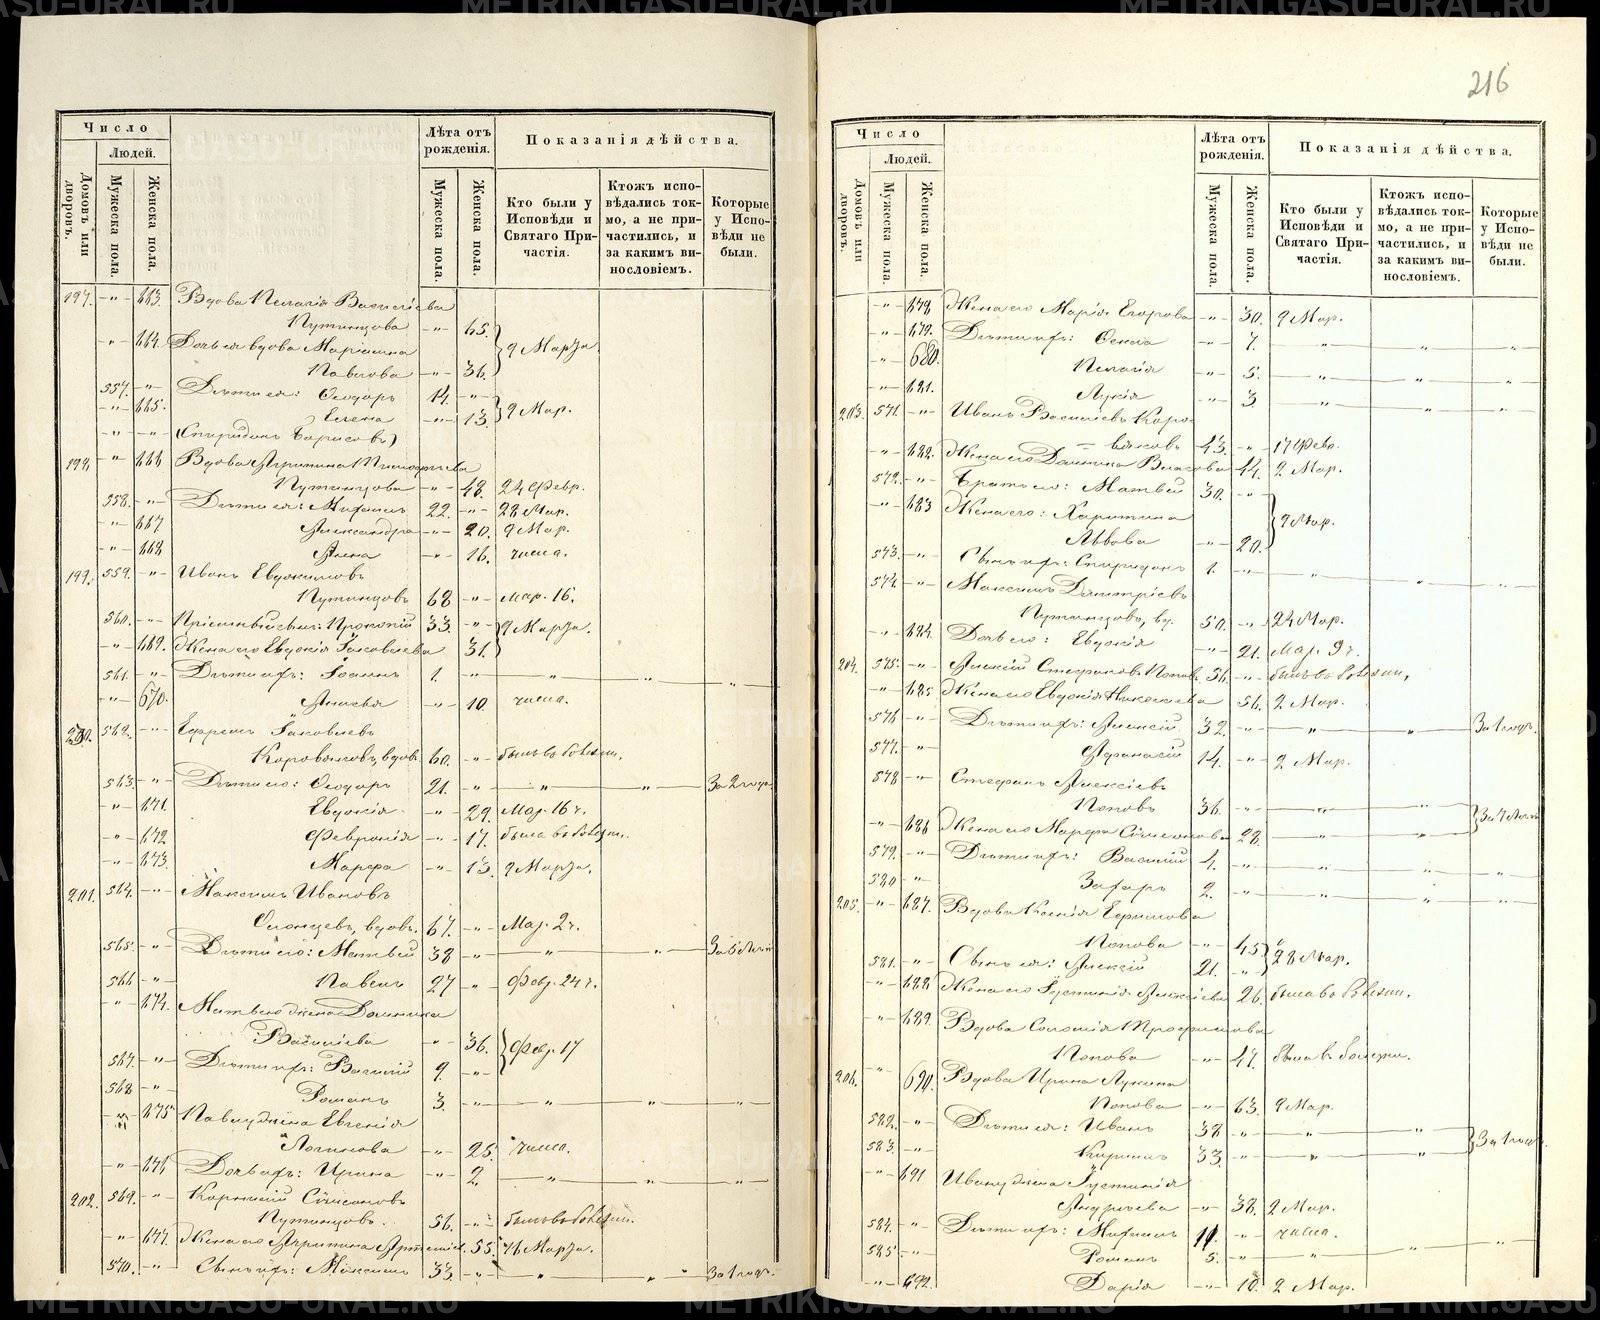 216
Число
Людей.
Домовъ или дворовъ.
Мужеска пола.
Женска пола.
Лѣта отъ рожденія.
Мужеска пола.
Женска пола.
Показанія дѣйства.
Кто были у Исповѣди и Святаго Причастія.
Ктожъ исповѣдались токмо, а не причастились, и за какимъ винословіемъ.
Которые у Исповѣди не были.
197. -"- 663. Вдова Пелагія Василіева
Путинцова -"- 65.
-"- 664. Дочь ея вдова Маріамна 9 Марта.
Павлова -"- 36.
557. -"- Дѣти ея: Ѳеодоръ 14. -"-
-"- 665. Елена -"- 13. 9 Мар.
-"- -"- (Спиридонъ Борисовъ)
198. " 666 Вдова Агрипина Тимофѣева
Путинцова -"- 48. 24 Февр.
558. -"- Дѣти ея: Михаилъ 22. -"- 28 Мар.
-"- 667 Александра -"- 20. 9 Мар.
-"- 668 Анна -"- 16. числа.
199. 559. -"- Иванъ Евдокимовъ
Путинцовъ 68 -"- Мар. 16.
560. -"- Пріемный сынъ: Прокопій 33. -"- 9 Марта.
-"- 669. Жена его Евдокія Іаковлева 31.
561. -"- Дѣти ихъ: Іоаннъ 1. -"- -"- -"- -"-
-"- 670. Анисья -"- 10. числа.
200. 562. -"- Ефремъ Іаковлевъ
Коровяковъ, вдовъ 60. -"- былъ въ болезни.
563. -"- Дѣти его: Ѳеодоръ 21. -"- -"- -"- За 2 года.
-"- 671. Евдокія -"- 29. Мар. 16 ч.
-"- 672 Февронія -"- 17. была въ болезни.
-"- 673. Марфа -"- 13. 9 Марта.
201. 564. -"- Максимъ Ивановъ
вдовъ. 67. -"- Мар. 2 ч.
565. -"- Дѣти его: Матвей 38 -"- -"- -"- За 6 лѣтъ
566 -"- Павелъ 27 -"- Фев. 24 ч.
-"- 674. Матвея жена Домника
Василіева -"- 36. Фев. 17
567. -"- Дѣти ихъ: Василій 9. -"-
568 -"- Романъ 3. -"- -"- -"- -"-
-"- 675 Павлу жена Евгенія
Логинова -"- 25. числа.
-"- 676 Дочь ихъ: Ирина -"- 2. -"- -"- -"-
202. 569. -"- Корнилій Симеоновъ
Путинцовъ. 56. -"- былъ въ болезни.
-"- 677. Жена его Агрипина 55. 16 Марта.
570. -"- Сынъ ихъ: Максимъ 33. -"- -"- -"- За 1 годъ.
Число
Людей.
Домовъ или дворовъ.
Мужеска пола.
Женска пола.
Лѣта отъ рожденія.
Мужеска пола.
Женска пола.
Показанія дѣйства.
Кто были у Исповѣди и Святаго Причастія.
Ктожъ исповѣдались токмо, а не причастились, и за какимъ винословіемъ.
Которые у Исповѣди не были.
-"- 678 Жена его Марія Егорова -"- 30. 9 Мар.
-"- 679. Дѣти ихъ: Ѳекла -"- 7. -"- -"- -"-
-"- 680. Пелагія -"- 5. -"- -"- -"-
-"- 681. Лукія -"- 3. -"- -"- -"-
203. 571. -"- Иванъ Василіевъ Коро-
вяковъ 43. -"- 17 Фев.
-"- 682. Жена его Домника Власова 44. 2 Мар.
572. -"- Братъ его: Матвей 30. -"-
-"- 683 Жена его: Харитина 9 Мар.
Львова -"- 20.
573. -"- Сынъ ихъ: Спиридонъ 1. -"- -"- -"- -"-
574. -"- Максимъ Димитріевъ
Путинцовъ, вд. 50. -"- 24 Мар.
-"- 684. Дочь его: Евдокія -"- 21. Мар. 9 ч.
204. 575. -"- Алексій Стефановъ Поповъ 56. -"- былъ въ болезни,
-"- 685 Жена его Евдокія 56. 2 Мар.
576 -"- Дѣти ихъ: Алексій 32. -"- -"- -"- За 1 годъ.
577. -"- Афанасій 14. -"- 2 Мар.
578 -"- Стефанъ Алексіевъ
Поповъ 36. -"- -"- -"- За 4 лѣта
-"- 686 Жена его Марфа Симеонова 28. -"- -"-
579. -"- Дѣти ихъ: Василій 4. -"- -"- -"- -"-
580 -"- Захаръ 2. -"- -"- -"- -"-
205. -"- 687. Вдова Ксенія Ефимова
Попова -"- 45 28 Мар.
581. -"- Сынъ ея: Алексій 21. -"-
-"- 688 Жена его Іустинія Алексіева 26. была въ болезни.
-"- 689. Вдова Соломія Трофимова
Попова -"- 47. была въ болезни.
206. -"- 690. Вдова Ирина Лукина
Попова -"- 63. 9 Мар.
582. -"- Дѣти ея: Иванъ 38 -"- -"- -"- За 1 годъ.
583. -"- Кирилъ 33. -"- -"- -"-
-"- 691 Ивану жена Іустинія
Андреева -"- 38. 2 Мар.
584. -"- Дѣти ихъ: Михаилъ 11. -"- числа.
585. -"- Романъ 5. -"- -"- -"- -"-
-"- 692. Дарія -"- 10. 2 Мар.
METRIKI.GASU-URAL.RU